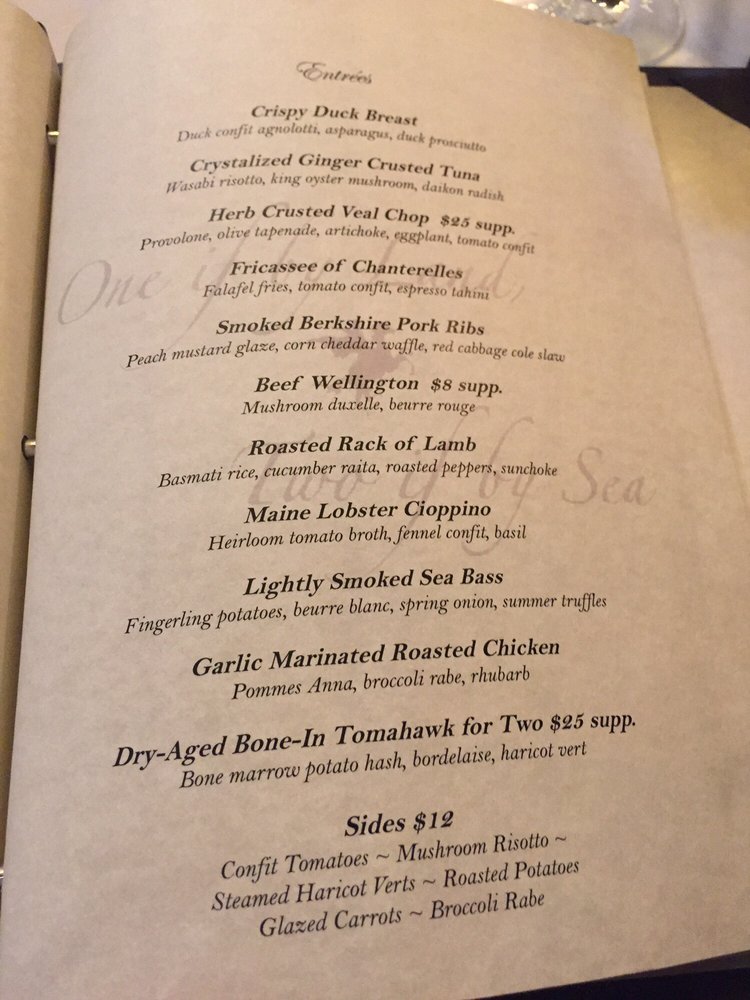 Entrées
Crispy Duck Breast
Duck confit agnolotti, asparagus, duck prosciutto
Crystalized Ginger Crusted Tuna
Wasabi risotto, king oyster mushroom, daikon radish
Herb Crusted Veal Chop $25 supp.
Provolone, olive tapenade, artichoke, eggplant, tomato confit
One if by Land,
Fricassee of Chanterelles
Falafel fries, tomato confit, espresso tahini
Smoked Berkshire Pork Ribs
Peach mustard glaze, corn cheddar waffle, red cabbage cole slaw
Beef Wellington $8 supp.
Mushroom duxelle, beurre rouge
Roasted Rack of Lamb
Basmati rice, cucumber raita, roasted peppers, sunchoke
Two if by Sea
Maine Lobster Cioppino
Heirloom tomato broth, fennel confit, basil
Lightly Smoked Sea Bass
Fingerling potatoes, beurre blanc, spring onion, summer truffles
Garlic Marinated Roasted Chicken
Pommes Anna, broccoli rabe, rhubarb
Dry-Aged Bone-In Tomahawk for Two $25 supp.
Bone marrow potato hash, bordelaise, haricot vert
Sides $12
Confit Tomatoes ~ Mushroom Risotto ~
Steamed Haricot Verts ~ Roasted Potatoes
Glazed Carrots ~ Broccoli Rabe